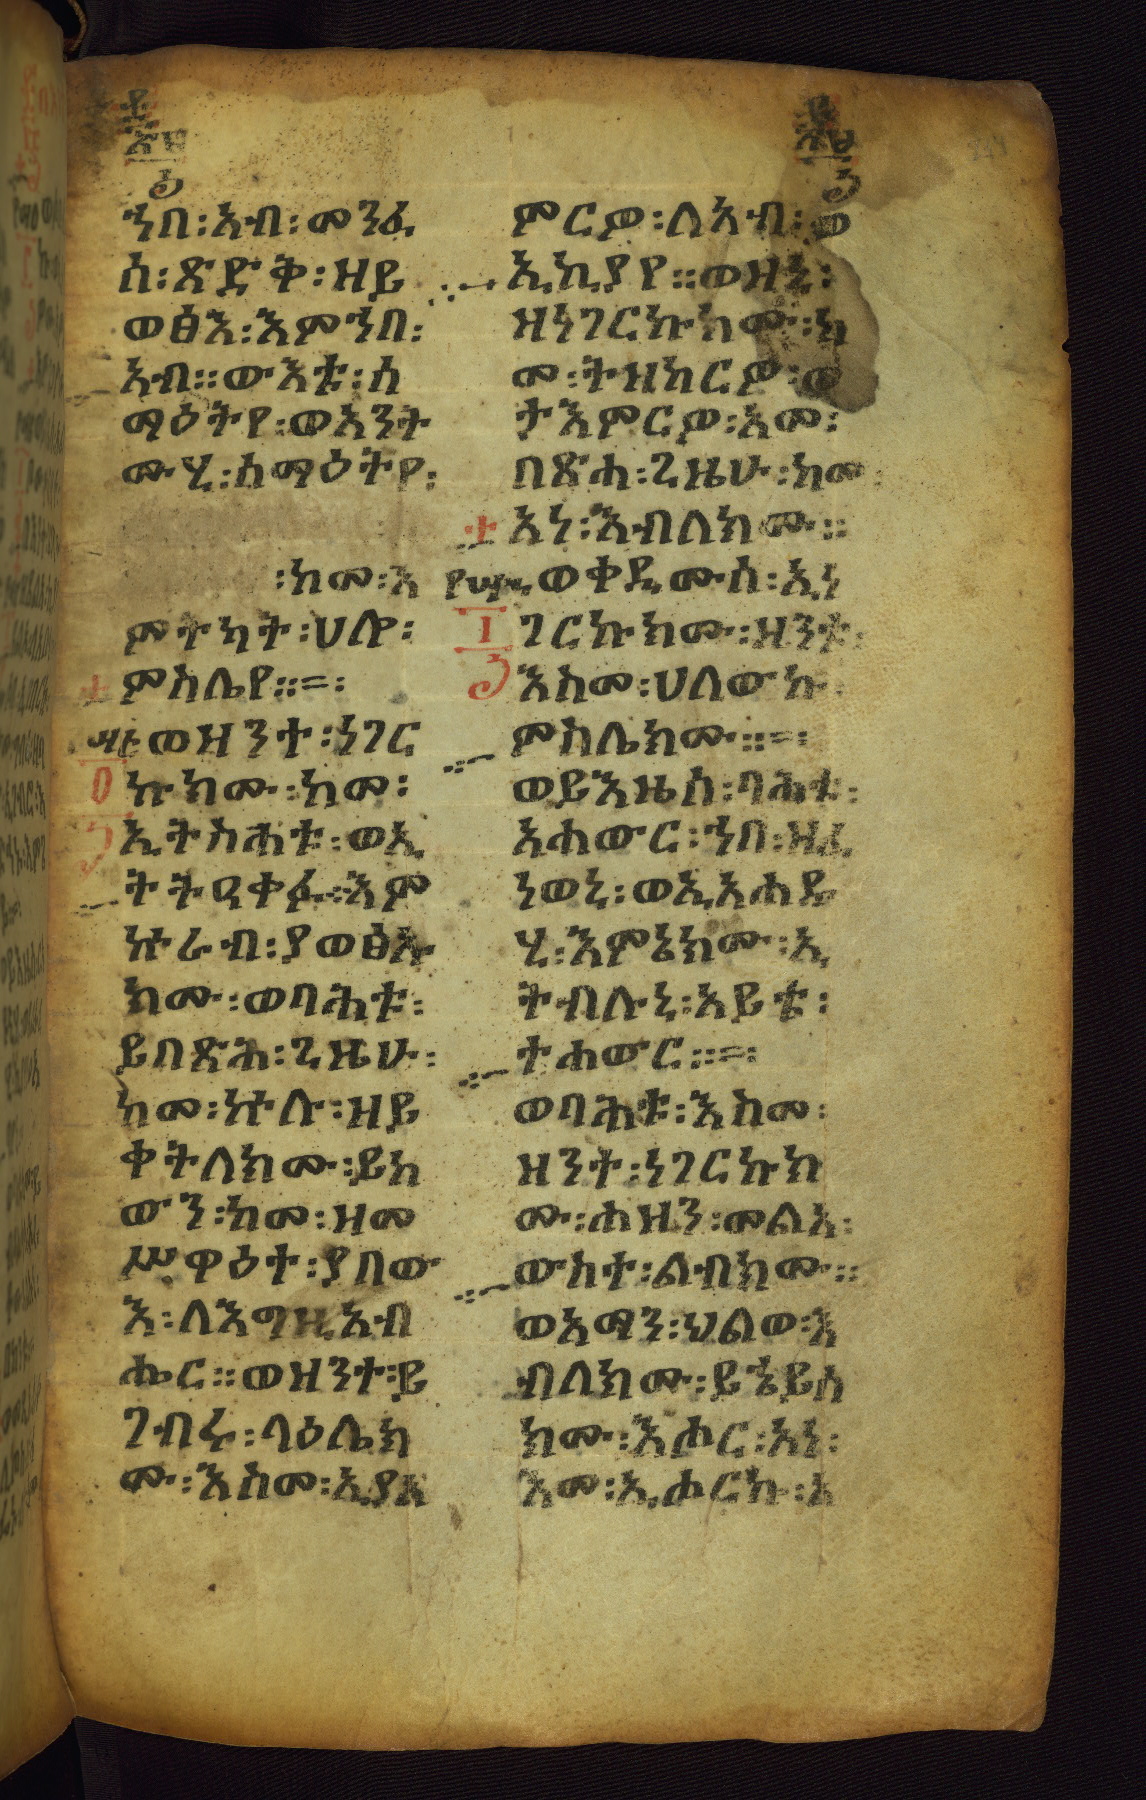 ኀበ፡አብ፡መንፈ
ሰ፡ጽድቅ፡ዘይ
ወፅእ፡እምኀበ፡
አብ።ውእቱ፡ሰ
ማዕትየ፡ወአንት
ሙሂ፡ሰማዕትየ፡
፡ከመ፡እ
ምትካት፡ሀሎ፡
ምስሌየ።=፡
ወዝንተ፡ነገር
ኩክሙ፡ከመ፡
ኢትስሐቱ፡ወኢ
ትትዐቀፉ።እም
ኵራብ፡ያወፅኡ
ክሙ፡ወባሕቱ፡
ይበጽሕ፡ጊዜሁ፡
ከመ፡ኵሉ፡ዘይ
ቀትለክሙ፡ይከ
ውን፡ከመ፡ዝመ
ሥዋዕተ፡ያበው
እ፡ለእግዚአብ
ሔር።ወዝንተ፡ይ
ገብሩ፡ላዕሌክ
ሙ፡እስመ፡ኢያአ
ምርዎ፡ለአብ፡ወ
ኢኪያየ።ወዝኒ፡
ዝነገርኩክሙ፡ከ
መ፡ትዝከርዎ፡ወ
ታእምርዎ፡አመ፡
በጽሐ፡ጊዜሁ፡ከመ፡
አነ፡እብለክሙ።
ወቀዲሙሰ፡ኢነ
ገርኩክሙ፡ዘንተ፡
እስመ፡ሀለውኩ፡
ምስሌክሙ።=፡
ወይእዜሰ፡ባሕቱ፡
አሐውር፡ኀበ፡ዝፈ
ነወኒ፡ወኢአሐዱ
ሂ፡እምኔክሙ፡ኢ
ትብሉኒ፡አይቴ፡
ተሐውር።=፡
ወባሕቱ፡እስመ፡
ዘንተ፡ነገርኩክ
ሙ፡ሐዝን፡መልአ፡
ውስተ፡ልብክሙ።
ወአማን፡ህልው፡እ
ብለክሙ፡ይኄይስ
ክሙ፡እሖር፡አነ፡
እመ፡ኢሖርኩ፡አ